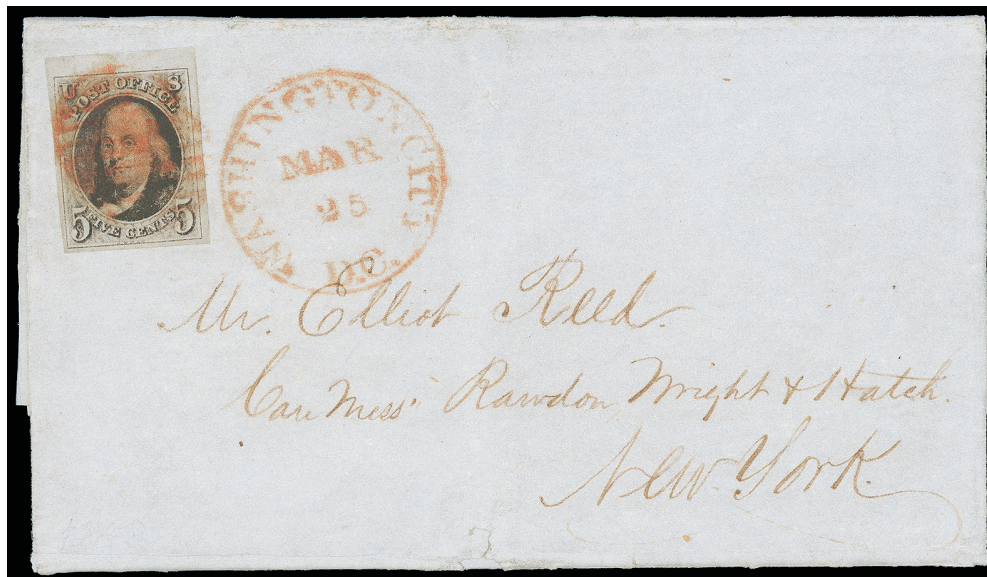 U S
POST OFFICE
5 FIVE CENTS 5
WASHINGTON CITY
MAR
25
D.C.
Mr. Elliot Reed.
Care Messrs Rawdon Wright & Hatch.
New York.